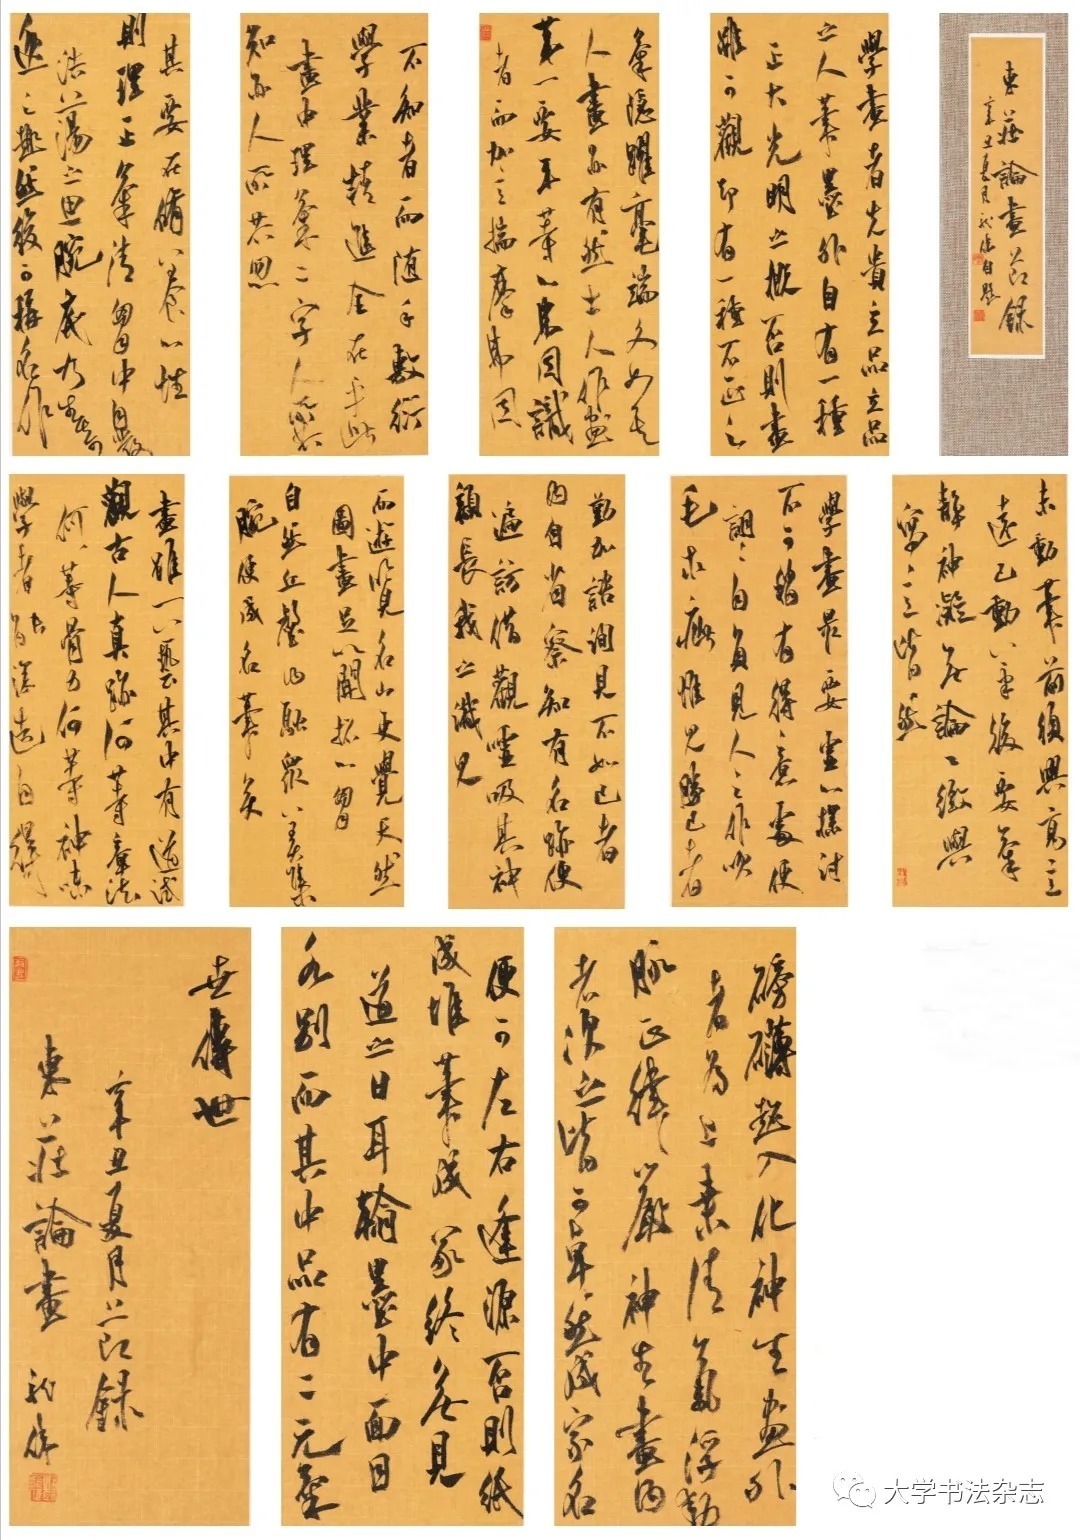 東莊論畫節錄
辛丑夏月
自題
學畫者先貴立品立品
之人筆墨外自有一種
正大光明之概否則畫
雖可觀卻有一種不正之
氣隱躍毫端文如其
人畫亦有然士人作畫
第一要平等心弗因識
者而加意揣摩弗因
不知者而随手敷衍
學業精進全在乎此
畫中理氣二字人所共
知亦人所共忽
其要在脩心養性
則理正氣清胸中自發
浩蕩之思腕底乃生奇
逸之趣然後可稱名作
未動筆前須興高意
遠已動筆後要氣
靜神凝無論工緻與
寫意皆然
學畫最要虛心探討
不可稍有得意處便
詡詡自負見人之作吹
毛求疵惟見勝己者
勤加諮詢見不如己者
內自省察知有名跡便
遍訪借觀噓吸其神
韻長我之識見
而遊覽名山更覺天然
圖畫足以開拓心胸
自然丘壑內融眾美集
腕便成名筆矣
畫雖一藝其中有道試
觀古人真跡何等章法
何等骨力何等神味
學者能深造自得
磅礴超入化神生畫外
者為上乘清氣浮動
脉正律嚴神生畫內
者次之皆可卓然成家名
便可左右逢源否則紙
成堆筆成冢終無見
道之日耳翰墨中面目
各別而其中品有二元氣
世傳世
辛丑夏月節錄
東莊論畫
大学书法杂志